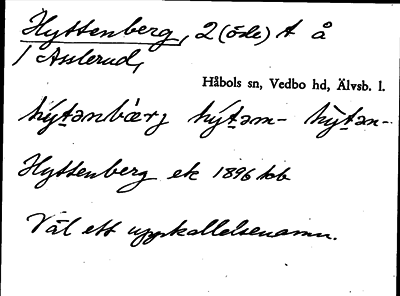 Hyttenberg, 2 (öde) t å
1 Asslerud,
Håbols sn, Vedbo hd, Älvsb. l.
hýt̲ənbærj hýt̲əm- hỳt̲ən-
Hyttenberg ek 1896 kb
Väl ett uppkallelsenamn.